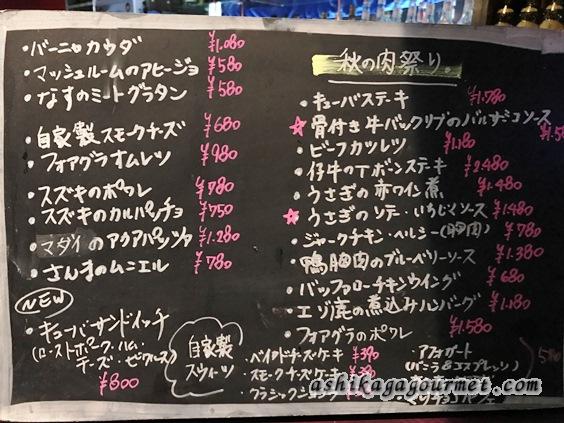 ・バーニャカウダ ¥1.080
・マッシュルームのアヒージョ ¥580
・なすのミートグラタン ¥580
・自家製スモークチーズ ¥680
・フォアグラオムレツ ¥980
・スズキのポワレ ¥780
・スズキのカルパッチョ ¥750
・マダイのアクアパッツァ ¥1.280
・さんまのムニエル ¥780
NEW
・キューバサンドイッチ
(ローストポーク・ハム・
チーズ・ピクルス)
¥800
秋の肉祭り。
・キューバステーキ ¥1.780
★骨付き牛バックリブのバルサミコソース
・ビーフカツレツ ¥1.180
・仔牛のTボーンステーキ ¥2.480
・うさぎの赤ワイン煮 ¥1.480
★うさぎのソテーいちじくソース ¥1.480
・ジャークチキン・ヘルシー(胸肉) ¥780
・鴨胸肉のブルーベリーソース ¥1.380
・バッファローチキンウイング ¥680
・エゾ鹿の煮込みハンバーグ ¥1.180
・フォアグラのポワレ ¥1.580
自家製
スウィーツ
・ベイクドチーズケーキ ¥390
・スモークチーズケーキ
・クラシックショコラ
・アフォガート
(バニラ&エスプレッソ)
ashikagagourmet.com